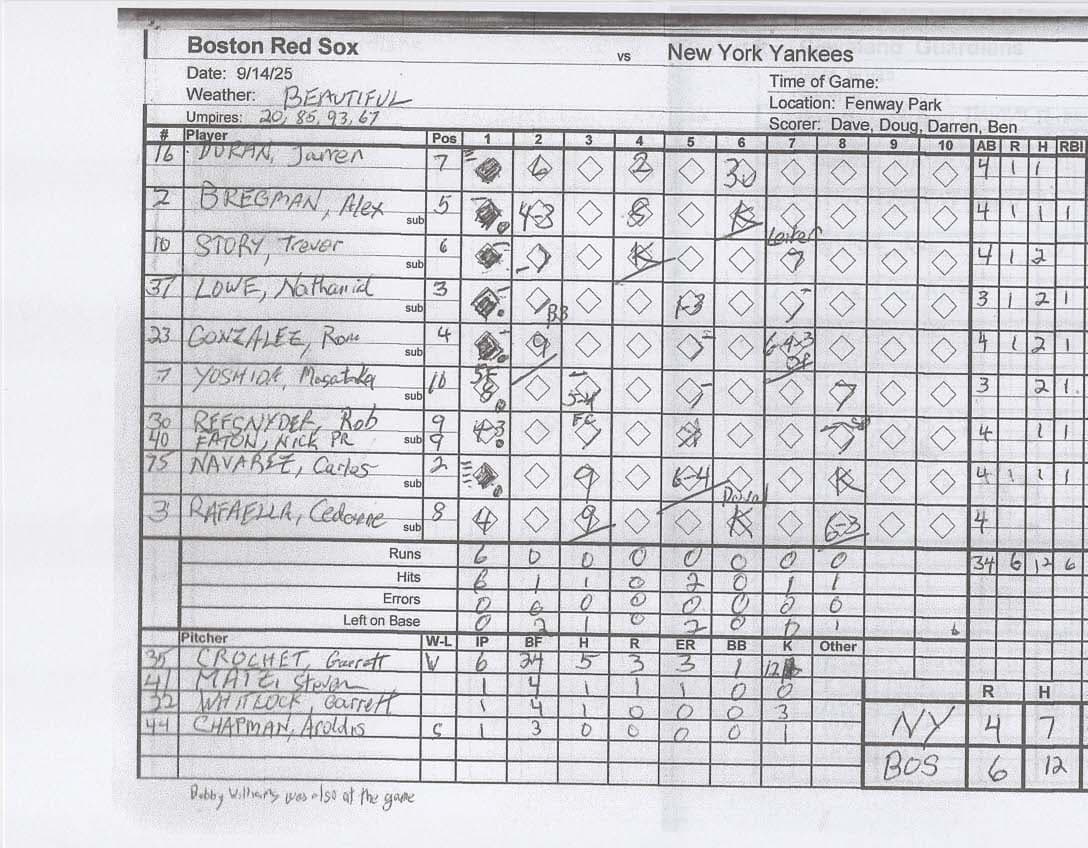 Boston Red Sox vs New York Yankees
Date: 9/14/25
Weather: BEAUTIFUL
Umpires: 20, 85, 93, 67
Time of Game:
Location: Fenway Park
Scorer: Dave, Doug, Darren, Ben
# Player Pos 1 2 3 4 5 6 7 8 9 10 AB R H RBI
16 DURAN, Jarren 7 6 2 3u 4 1 1
2 BREGMAN, Alex sub 5 4-3 8 K 4 1 1 1
Leiter
10 STORY, Trevor sub 6 7 K 7 4 1 2
37 LOWE, Nathaniel sub 3 BB 1-3 7 3 1 2 1
23 GONZALEZ, Rom sub 4 9 6-4-3 DP 4 1 2 1
7 YOSHIDA, Masataka sub 10 SF 8 5-4 7 3 2 1
30 REFSNYDER, Rob 9 4-3 FC 4 1 1
40 EATON, NICK PR sub 9
75 NAVAREZ, Carlos sub 2 9 6-4 K 4 1 1 1
3 RAFAELLA, Cedanne sub 8 4 9 K 6-3 4
Runs 6 0 0 0 0 0 0 0 34 6 12 6
Hits 6 1 1 0 2 0 1 1
Errors 0 0 0 0 0 0 0 0
Left on Base 0 2 1 0 2 0 0 1 6
Pitcher W-L IP BF H R ER BB K Other
35 CROCHET, Garrett W 6 24 5 3 3 1 12
41 MATZ, Steven 1 4 1 1 1 0 0
22 WHITLOCK, Garrett 1 4 1 0 0 0 3
44 CHAPMAN, Aroldis S 1 3 0 0 0 0 1
R H
NY 4 7
BOS 6 12
Bobby Williams was also at the game